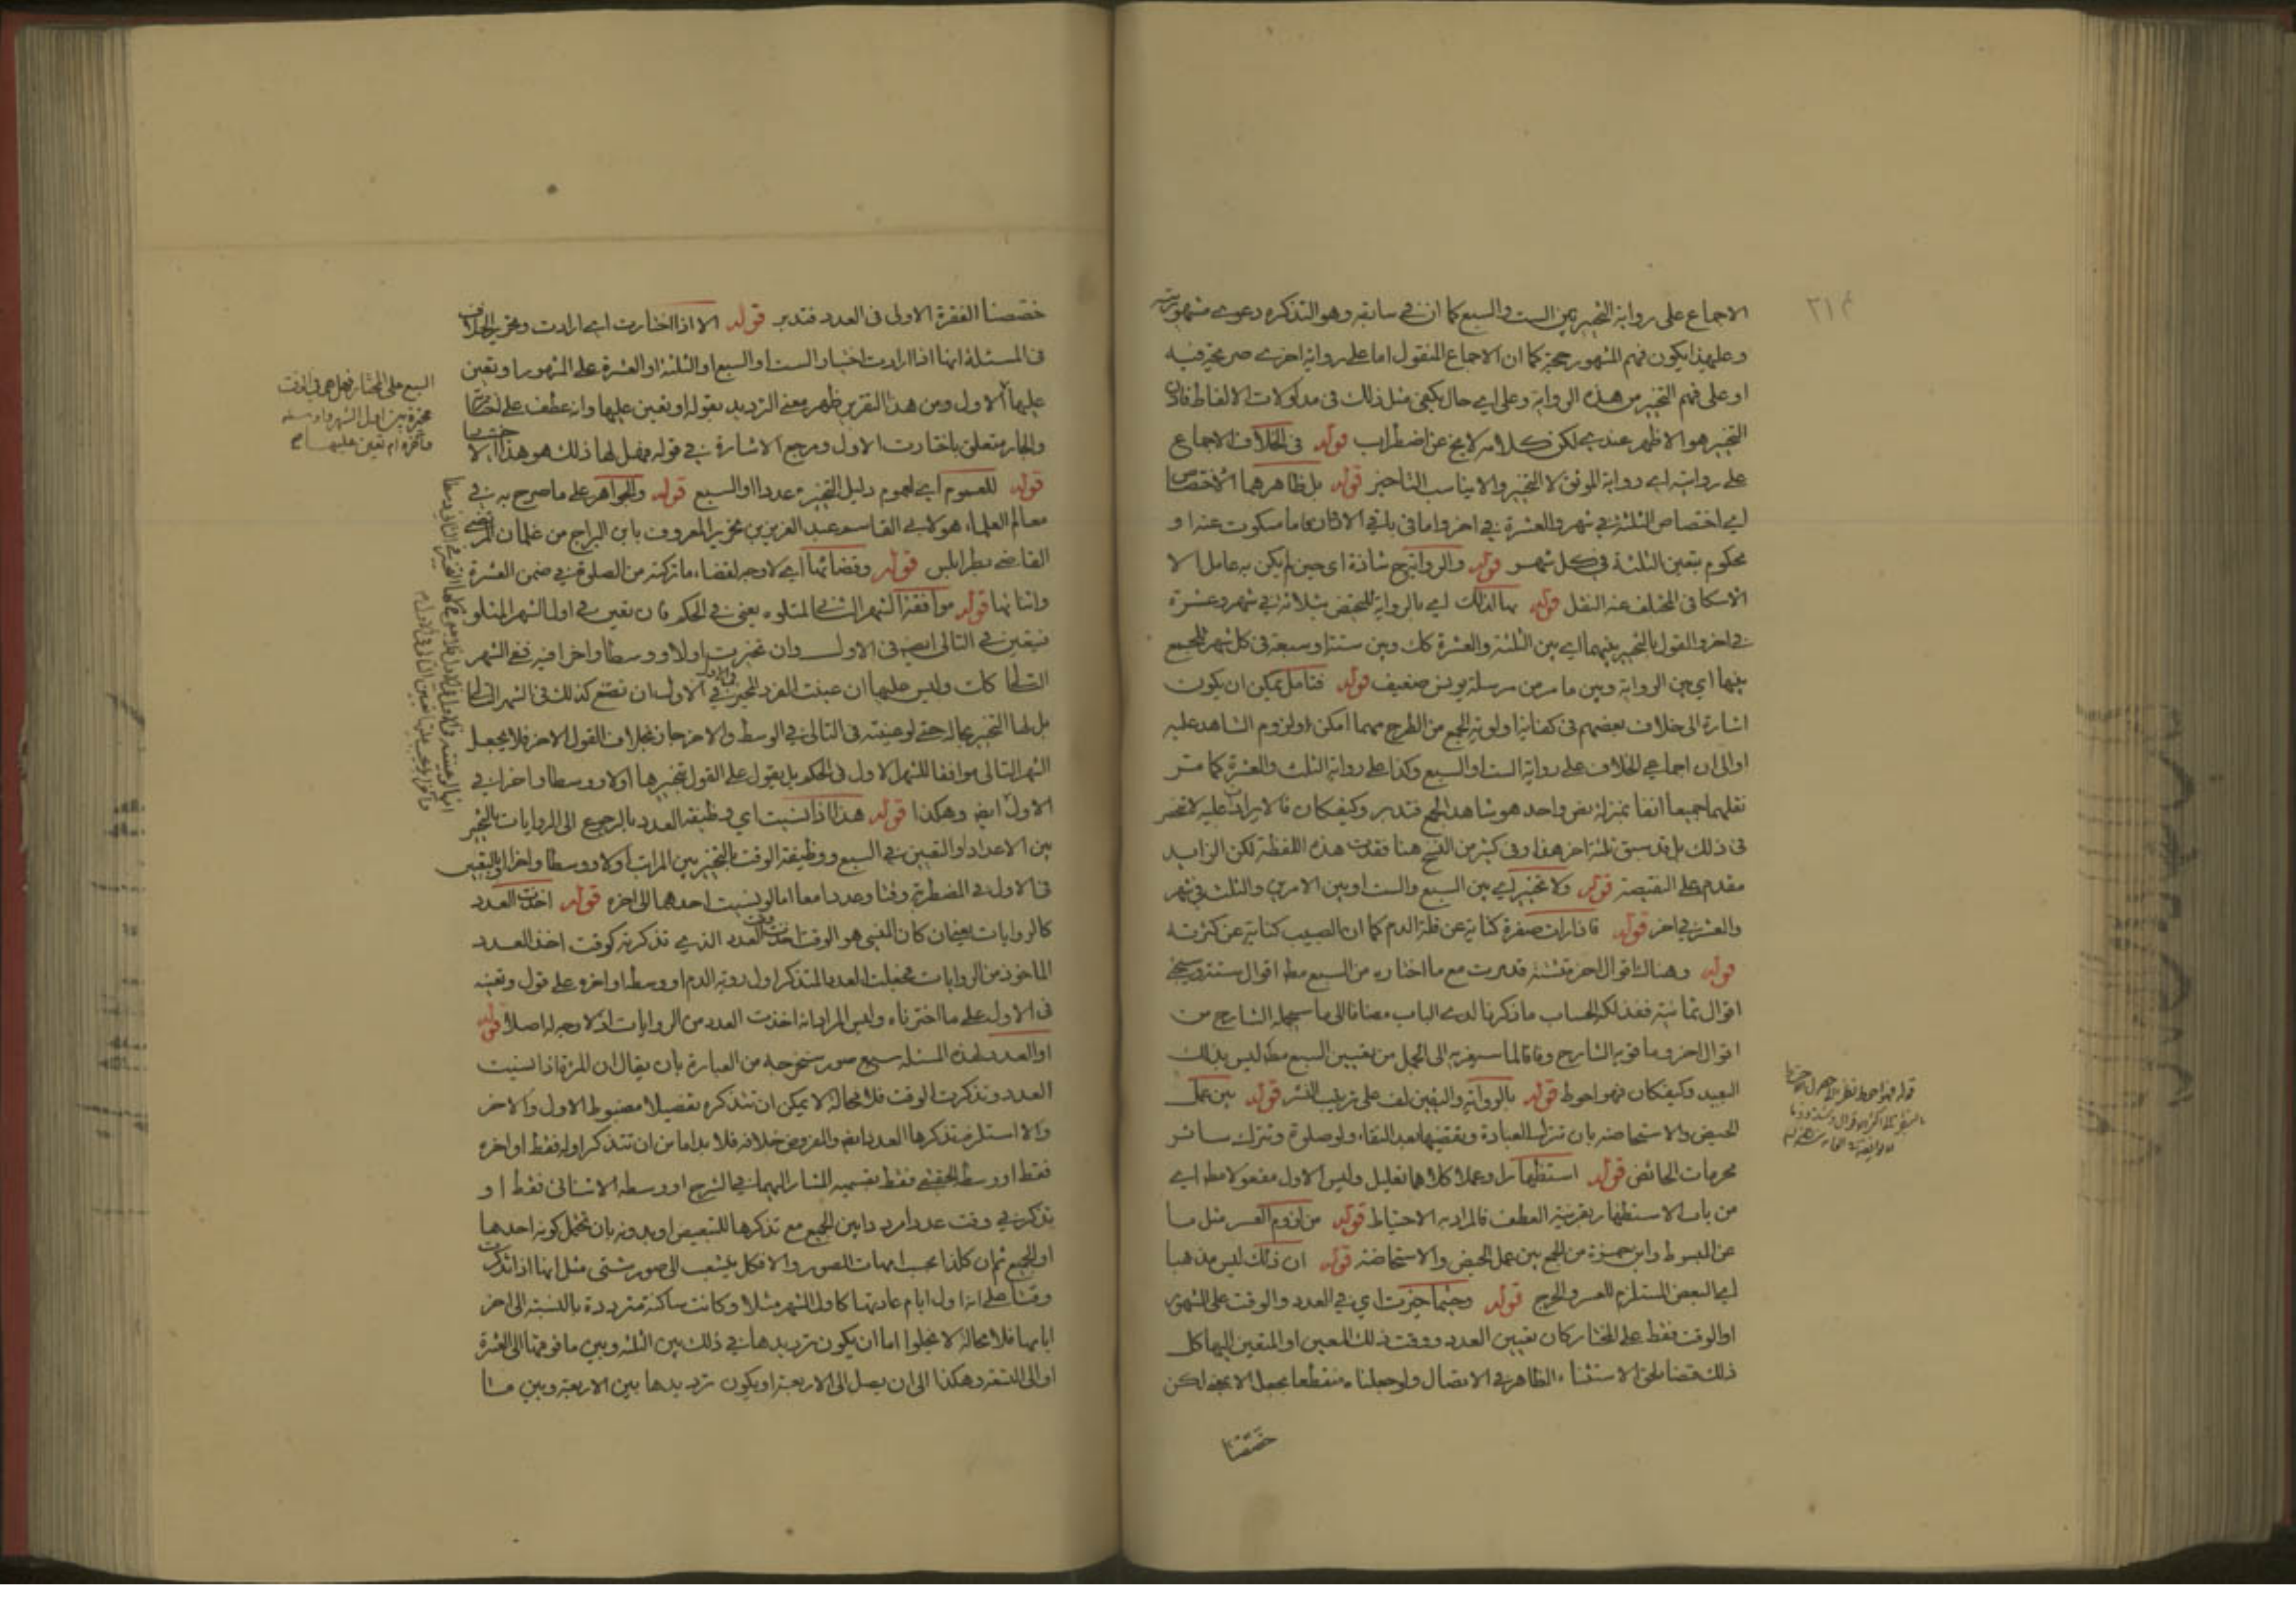 ٢١٣
الاجماع على رواية التخيير بين الست والسبع كما ان في سابقه وهو التذكرة دعوى مشهورية
وعليهذا يكون فهم المشهور حجة كما ان الاجماع المنقول اما على رواية اخرى صريحة فيه
او على فهم التخيير من هذه الرواية وعلى اي حال يكفي مثل ذلك في مدلولات الالفاظ فاذن
التخيير هو الاظهر عندي لكن كلامه لا يخ عن اضطراب قوله في الخلاف الاجماع
على روايته اي رواية الموثق لا التخيير والا يناسب التاخير قوله بل ظاهرهما الاختصاص
اي اختصاص الثلثة في شهر والعشرة في اخر واما في باقي الادوار فاما مسكوت عنه او
محكوم بتعين الثلثة في كل شهر قوله والرواية ح شاذة اى حين لم يكن به عامل الا
الاسكافى المختلف عنه النقل قوله بها لذلك اي بالرواية للتحيض بثلاثة في شهر وعشرة
في اخر والقول بالتخيير بينهما اي بين الثلثة والعشرة كك وبين ستة او سبعة في كل شهر للجمع
بينها اي بين الرواية وبين ما مر من مرسلة يونس ضعيف قوله فتامل يمكن ان يكون
اشارة الى خلاف بعضهم في كفاية اولوية الجمع من الطرح مهما امكن او لزوم الشاهد عليه
او الى ان اجماعي الخلاف على رواية الست او السبع وكذا على رواية الثلث والعشرة كما مر
نقلهما جميعا انفا بمنزلة نص واحد هو شاهد الجمع فتدبر وكيفكان فالايرادات عليه لا تنحصر
في ذلك بل قد سبق ثلثة اخر هذا وفي كثير من النسخ هنا فقدت هذه اللفظة لكن الزايد
مقدم على النقيصة قوله ولا تخيير اي بين السبع والست او بين الامرين والثلث في شهر
والعشر في اخر قوله فاذا رات صفرة كناية عن قلة الدم كما ان الصبيب كناية عن كثرته
قوله وهناك اقوال اخر منتشة قد مرت مع ما اختاره من السبع مط اقوال ستة وسيجئ
اقوال ثمانية ففذلكة الحساب ما ذكرنا لدى الباب مضافا الى ما سيجئ له الشارح من
اقوال اخر وما قويه الشارح وفاقا لما سيعزيه الى الجمل من تعيين السبع مط ليس بذلك
البعيد وكيفكان فهو احوط قوله بالرواية واليقين لف على ترتيب النشر قوله بين عمل
الحيض والاستحاضه بان تترك العبادة وتقضيها بعد النقاء ولو صلوة وتترك سائر
محرمات الحائض قوله استظهارا وعملا كلاهما تعليل وليس الاول مفعولا مط اي
من باب الاستظهار بقرينة العطف فالمراد به الاحتياط قوله من لزوم العسر مثل ما
عن المبسوط وابن حمزة من الجمع بين عمل الحيض والاستحاضة قوله ان ذلك ليس مذهبا
اي البعض المستلزم للعسر والحرج قوله وحيثما خيرت اي في العدد والوقت على المشهور
او الوقت فقط على المختار كان تعيين العدد ووقت ذلك المعين او المتعين اليها كل
ذلك قضا لحق الاستثناء الظاهر في الاتصال ولو جعلناه منقطعا بجعل الا بمعنى لكن
خصصنا
قوله فهو احوط
خصصنا الفقرة الاولى فى العدد فتدبر قوله الا اذا اختارت اي ارادت وتحرير الخلاف
فى المسئلة انها اذا ارادت اختيار الست او السبع او الثلثة او العشرة على المشهور او تعين
عليها الاول ومن هذا التقرير ظهر معنى الترديد بقوله او تعين عليها وانه عطف على اختارتها
والجار متعلق باختارت الاول ومرجع الاشارة في قوله فهل لها ذلك هو هذا الا
قوله للعموم اي لعموم دليل التخيير عددا او السبع قوله والجواهر على ما صرح به في
معالم العلماء هو لابي القاسم عبد العزيز بن نحرير المعروف بابن البراج من غلمان المرتضى
القاضي بطرابلس قوله وقضائها اي لا وجه لقضاء ما تركته من الصلوة في ضمن العشرة
واتيانها قوله موافقة الشهر الثاني لمتلوه يعني في الحكم فان تعين في اول الشهر المتلو
فيتعين في التالي ايض فى الاول وان تخيرت اولا ووسطا واخرا فيه ففي الشهر
التالي كك وليس عليها ان عينت الفرد المخير في الاول ان تصنع كذلك فى الشهر التالي
بل لها التخيير بحاله حتى لو عينته فى التالى في الوسط والاخر جاز بخلاف القول الاخر فلا يجعل
الشهر التالى موافقا للشهر الاول فى الحكم بل يقول على القول بتخيرها اولا ووسطا واخرا في
الاول ايض وهكذا قوله هذا اذا نسيت اي وظيفة العدد بالرجوع الى الروايات بالتخيير
بين الاعداد او التعيين في السبع ووظيفة الوقت بالتخيير بين المراتب اولا ووسطا واخرا او بالتعيين
فى الاول في المضطربة وقتا وعددا معا اما لو نسيت احدهما الى اخره قوله اخذت العدد
كالروايات يعني ان كان المنسى هو الوقت اخذت العدد الذي تذكرته كوقت اخذ العدد
الماخوذ من الروايات فجعلت العدد المتذكر اول روية الدم او وسطه او اخره على قول وتعينه
فى الاول على ما اخترناه وليس المراد انه اخذت العدد من الروايات اذ لا وجه له اصلا قوله
او العدد لهذه المسئلة سبع صور نستخرجه من العبارة بان يقال ان المرئة اذا نسيت
العدد وتذكرت الوقت فلا محالة لا يمكن ان تتذكره تفصيلا مضبوط الاول والاخر
والا استلزم تذكرها العدد ايض والمفروض خلافه فلا بد اما من ان تتذكر اوله فقط او اخره
فقط او وسطه الحقيقي فقط بقسميه المشار اليهما في الشرح او وسطه الاضافى فقط او
تذكر في وقت عددا مرددا بين الجميع مع تذكرها للتبعيض او بدونه بان تحتمل كونه احدهما
او الجميع ثم ان كل ذا بحسب امهات الصور والا فكل ينشعب الى صور شتى مثل انها اذا تذكرت
وقتا على انه اول ايام عادتها كاول الشهر مثلا وكانت ساكنة مترددة بالنسبة الى اخر
ايامها فلا محالة لا يخلوا اما ان يكون ترديدها في ذلك بين الثلثة وبين ما فوقها الى العشرة
او الى التسعة وهكذا الى ان يصل الى الاربعة او يكون ترديدها بين الاربعة وبين ما
السبع على المختار فهل هى فى الوقت
مخيرة بين اول الشهر واوسطه
وآخره ام تعين عليها